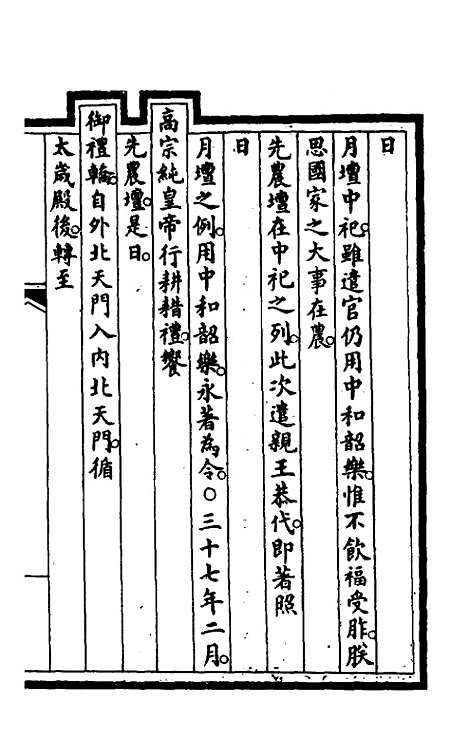 日
月壇中祀。雖遣官仍用中和韶樂。惟不飲福受胙。朕
思國家之大事在農。
先農壇在中祀之列。此次遣親王恭代。即著照
日
月壇之例。用中和韶樂。永著為令。○三十七年二月。
高宗純皇帝行耕耤禮。饗
先農壇。是日。
御禮轎。自外北天門入內北天門。循
太歲殿後。轉至